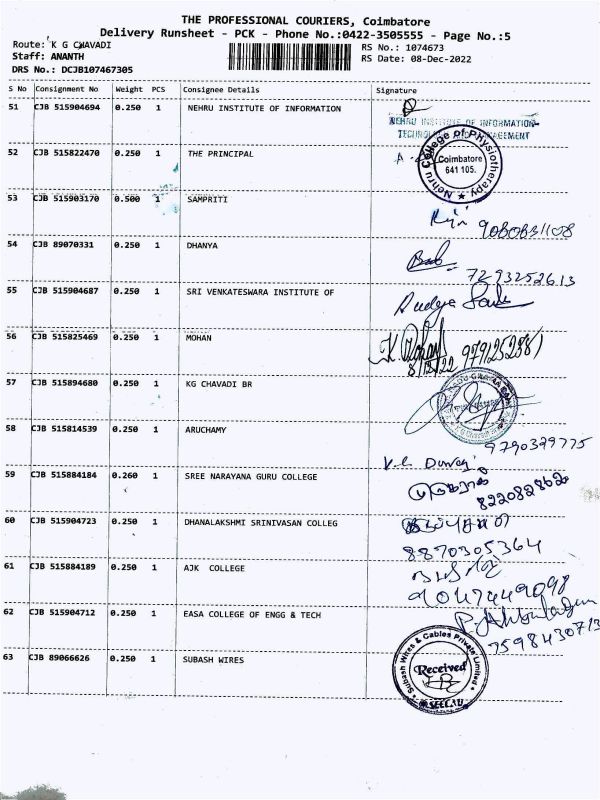 THE PROFESSIONAL COURIERS, Coimbatore
Delivery Runsheet - PCK - Phone No.:0422-3505555 - Page No.:5
Route: K G CHAVADI
Staff: ANANTH
DRS No.: DCJB107467305
RS No.: 1074673
RS Date: 08-Dec-2022
S No Consignment No Weight PCS Consignee Details Signature
51 CJB 515904694 0.250 1 NEHRU INSTITUTE OF INFORMATION
NEHRU INSTITUTE OF INFORMATION
52 CJB 515822470 0.250 1 THE PRINCIPAL
Nehru College of Physiotherapy
Coimbatore
641 105.
53 CJB 515903170 0.500 1 SAMPRITI
9080831108
54 CJB 89070331 0.250 1 DHANYA
7293252613
55 CJB 515904687 0.250 1 SRI VENKATESWARA INSTITUTE OF
56 CJB 515825469 0.250 1 MOHAN
57 CJB 515894680 0.250 1 KG CHAVADI BR
58 CJB 515814539 0.250 1 ARUCHAMY
9790329775
59 CJB 515884184 0.260 1 SREE NARAYANA GURU COLLEGE
8220828620
60 CJB 515904723 0.250 1 DHANALAKSHMI SRINIVASAN COLLEG
8870305364
61 CJB 515884189 0.250 1 AJK COLLEGE
62 CJB 515904712 0.250 1 EASA COLLEGE OF ENGG & TECH
7598430713
63 CJB 89066626 0.250 1 SUBASH WIRES
Subash Wires & Cables Private Limited
Received